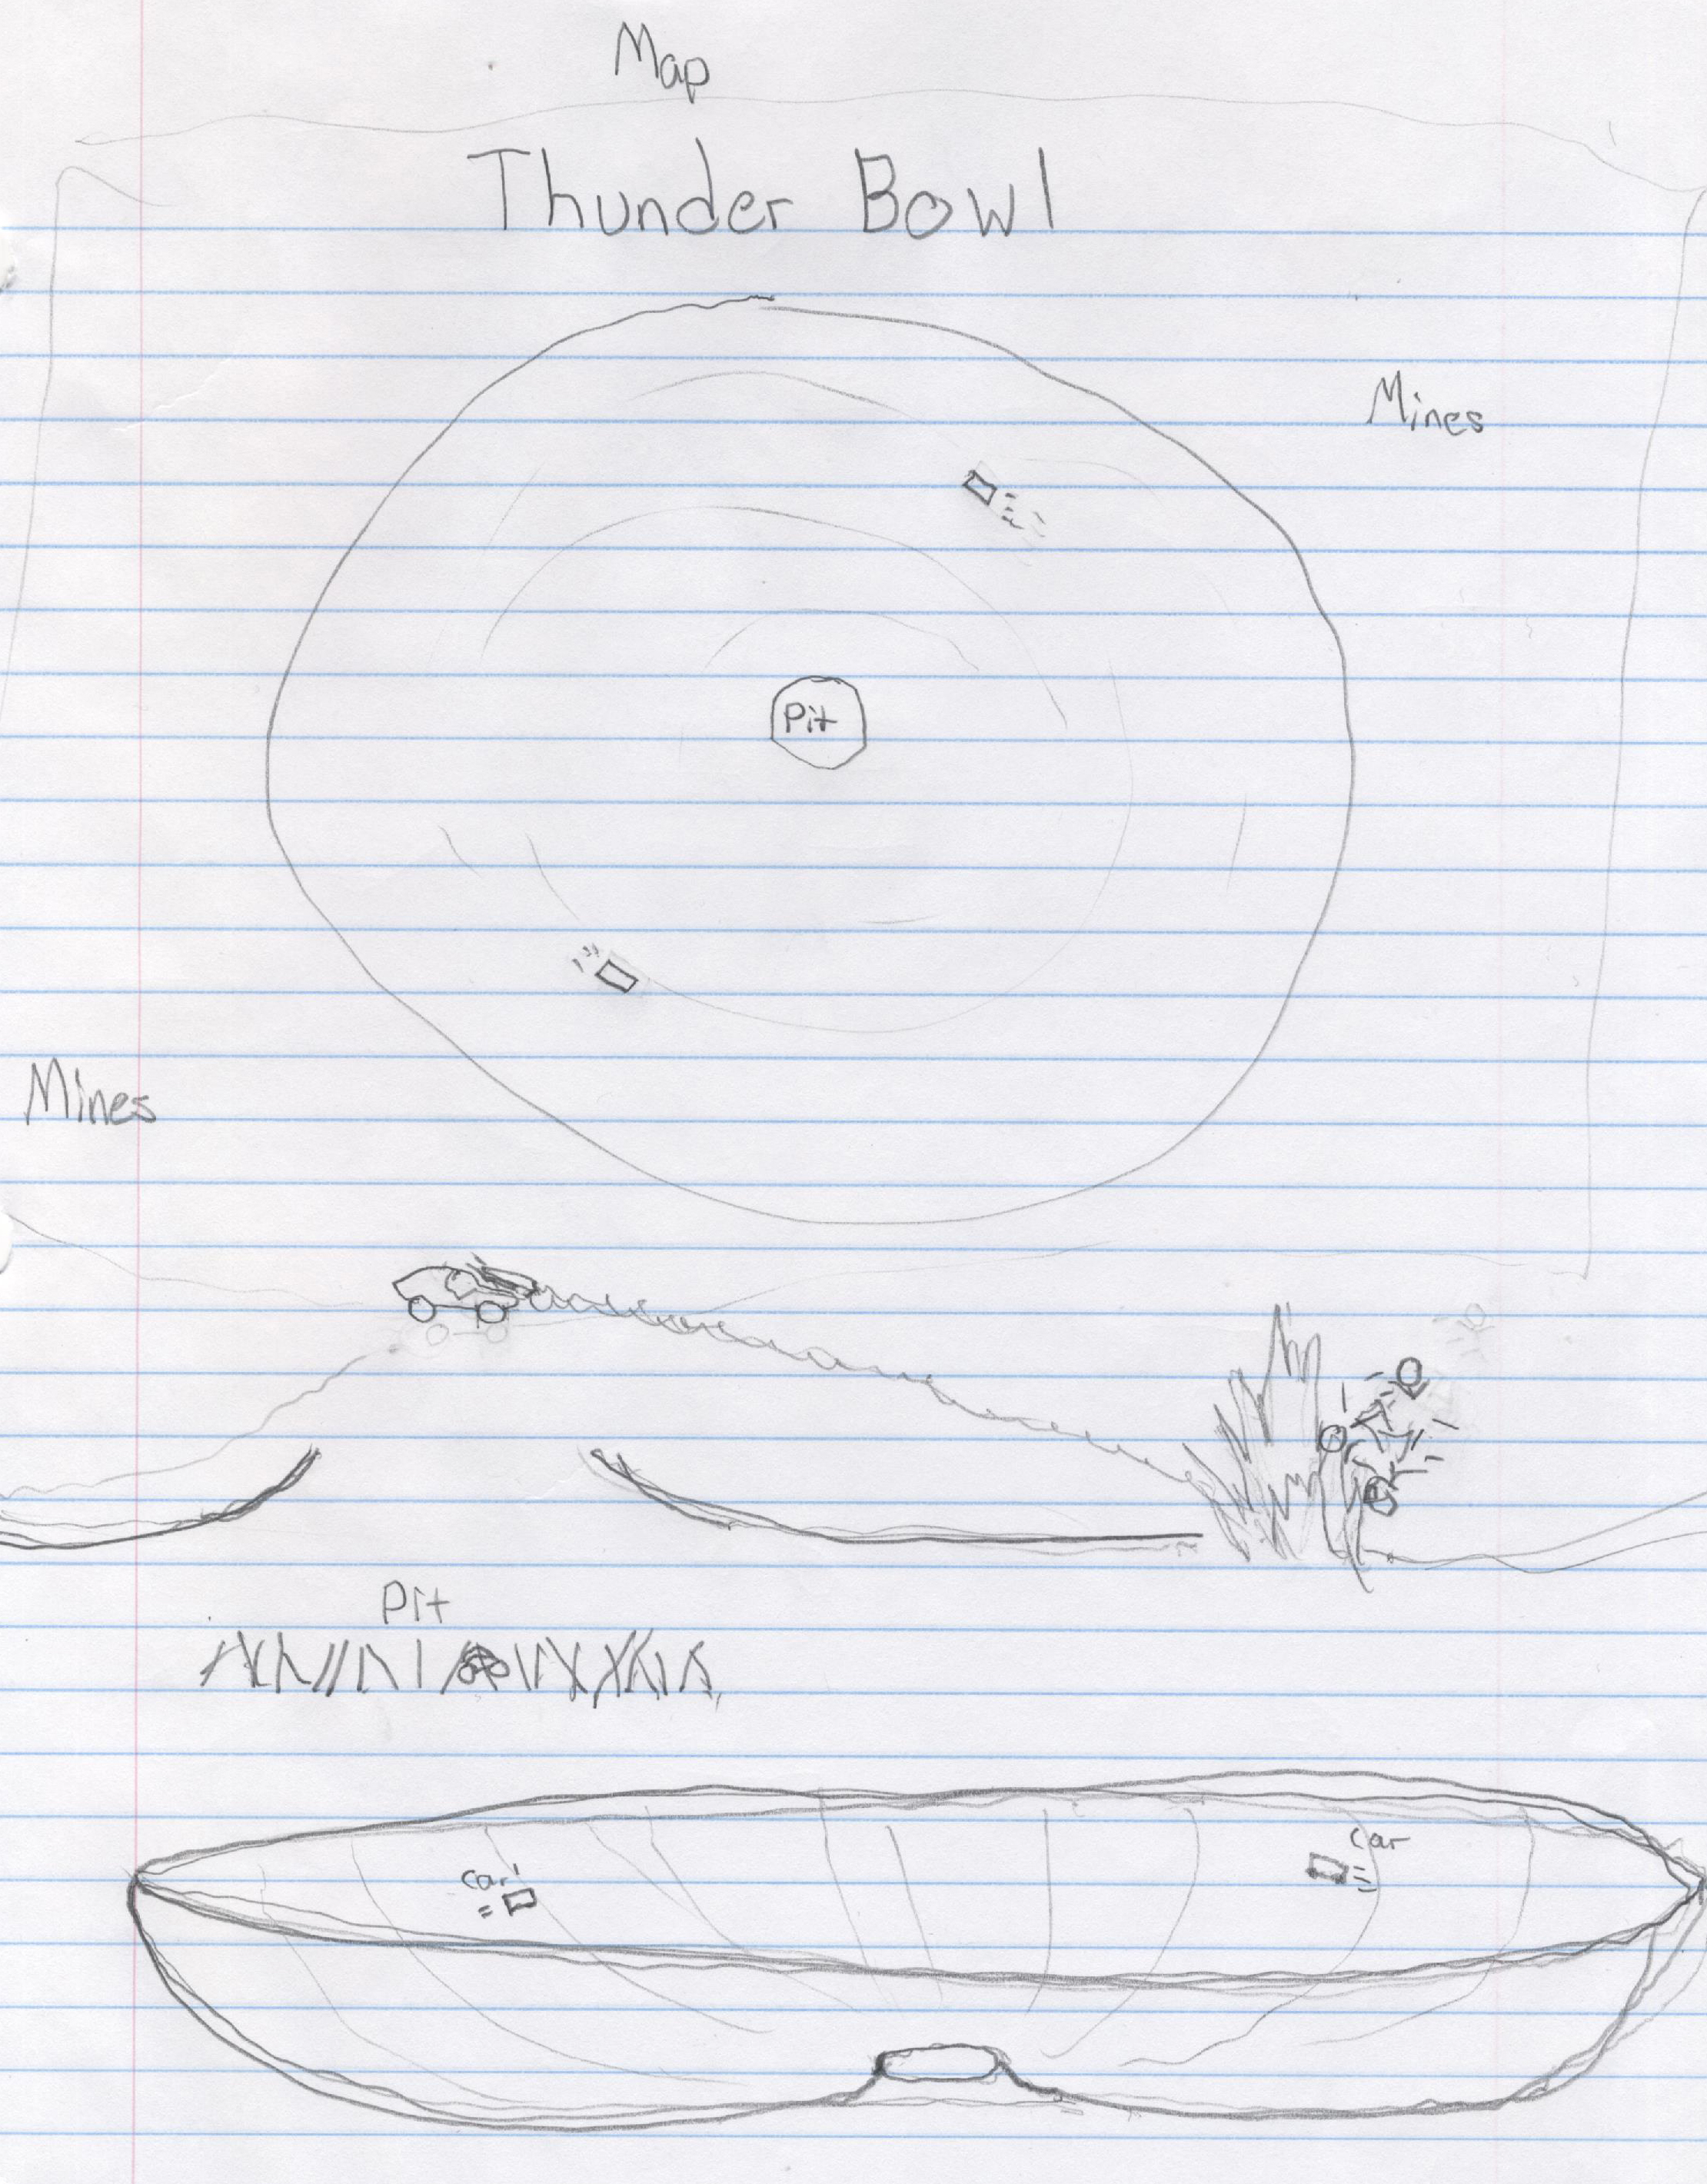 Map
Thunder Bowl
Mines
Pit
Mines
Pit
car
car